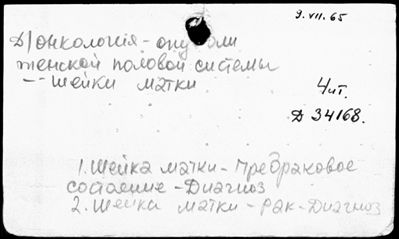 9.VII.65
Д/онкология - опухоли
женской половой системы
-- шейки матки
Чит.
Д 34168.
1. Шейка матки - Предраковое
состояние - Диагноз
2. Шейка матки - Рак - Диагноз